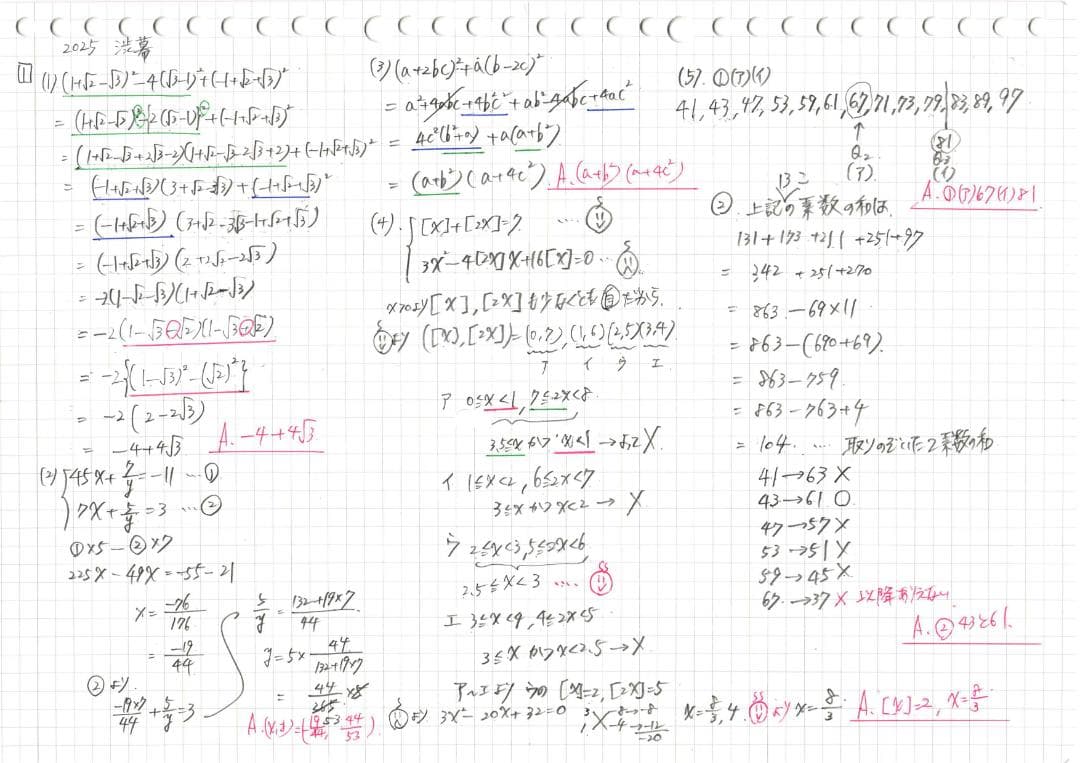 2025 渋幕
1
(1) (1+√2-√3)²-4(√3-1)²+(-1+√2+√3)²
= (1+√2-√3)²-{2(√3-1)}²+(-1+√2+√3)²
= (1+√2-√3+2√3-2)(1+√2-√3-2√3+2)+(-1+√2+√3)²
= (-1+√2+√3)(3+√2-3√3)+(-1+√2+√3)²
= (-1+√2+√3)(3+√2-3√3-1+√2+√3)
= (-1+√2+√3)(2+2√2-2√3)
= -2(1-√2-√3)(1+√2-√3)
= -2(1-√3-√2)(1-√3+√2)
= -2{(1-√3)²-(√2)²}
= -2(2-2√3)
= -4+4√3
A. -4+4√3
(2) 45x+7/y=-11 … ①
7x+5/y=3 … ②
①×5-②×7
225x-49x=-55-21
x=-76/176
=-19/44
②より
-19×7/44+5/y=3
5/y=(132+19×7)/44
y=5×44/(132+19×7)
A. (x,y)=(-19/44, 44/53)
(3) (a+2bc)²+a(b-2c)²
= a²+4abc+4b²c²+ab²-4abc+4ac²
= 4c²(b²+a)+a(a+b²)
= (a+b²)(a+4c²)
A. (a+b²)(a+4c²)
(4). [x]+[2x]=7 …
3x²-4[2x]x+16[x]=0 …
x>0より[x],[2x]も少なくとも自だから、
より ([x],[2x])=(0,7),(1,6),(2,5)(3,4)
ア イ ウ エ
ア 0≦x<1, 7≦2x<8
3.5≦x かつ x<1 → よって X
イ 1≦x<2, 6≦2x<7
3≦x かつ x<2 → X
ウ 2≦x<3, 5≦2x<6
2.5≦x<3 …
エ 3≦x<4, 4≦2x<5
3≦x かつ x<2.5 → X
ア~エより ウの [x]=2, [2x]=5
より 3x²-20x+32=0
3 -8→-8
1 -4→-12
-20
x=8/3, 4.
より x=8/3
A. [x]=2, x=8/3
(5). ①(ア)(イ)
41, 43, 47, 53, 59, 61, 67, 71, 73, 79, 83, 89, 97
↑
Q₂
(ア)
81
Q₃
(イ)
A. ①(ア)67(イ)81
13こ
② 上記の素数の和は、
= 342 +251+270
= 863-69×11
= 863-(690+69).
= 863-759
= 863-763+4
= 104. … 取りのぞいた2素数の和
41→63 X
43→61 O
47→57 X
53→51 X
59→45 X
67→37 X 以降ありえない
A. ② 43と61.